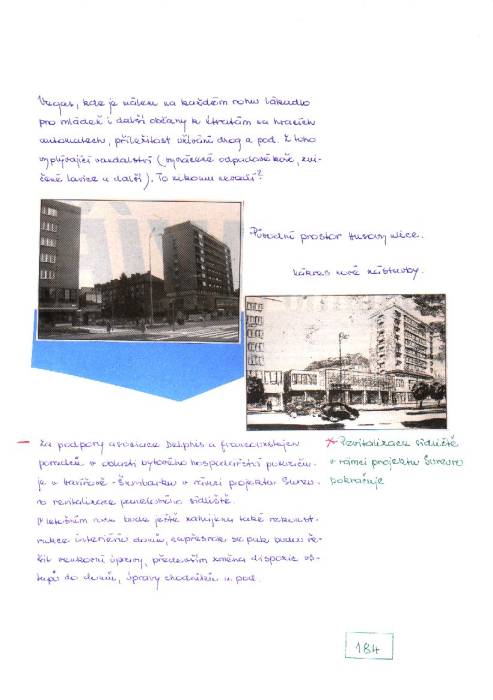 Vegas, kde je málem na každém rohu lákadlo
pro mládež i další občany k útratám na hracích
automatech, příležitost užívání drog a pod. Z toho
vyplývající vandalství (vyvrácené odpadové koše, zni-
čené lavice a další). To nikomu nevadí?
Původní prostor Husovy ulice.
Nákres nové zástavby.
— Za podpory asociace Delphis a francouzských
poradců v oblasti bytového hospodářství pokraču-
je v Havířově - Šumbarku v rámci projektu Sureu-
ro revitalizace panelového sídliště.
V letošním roce bude ještě zahájena také rekonst-
rukce interiérů domů, napřesrok se pak budou ře-
šit venkovní úpravy, především změna dispozic vs-
tupů do domů, úpravy chodníků a pod.
* Revitalizace sídliště
v rámci projektu Sureuro
pokračuje
184